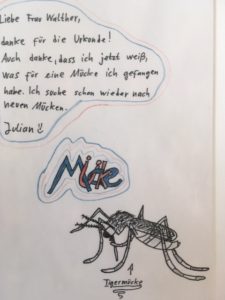 Liebe Frau Walther,
danke für die Urkunde!
Auch danke, dass ich jetzt weiß,
was für eine Mücke ich gefangen
habe. Ich suche schon wieder nach
neuen Mücken.
Julian
Mücke
Tigermücke